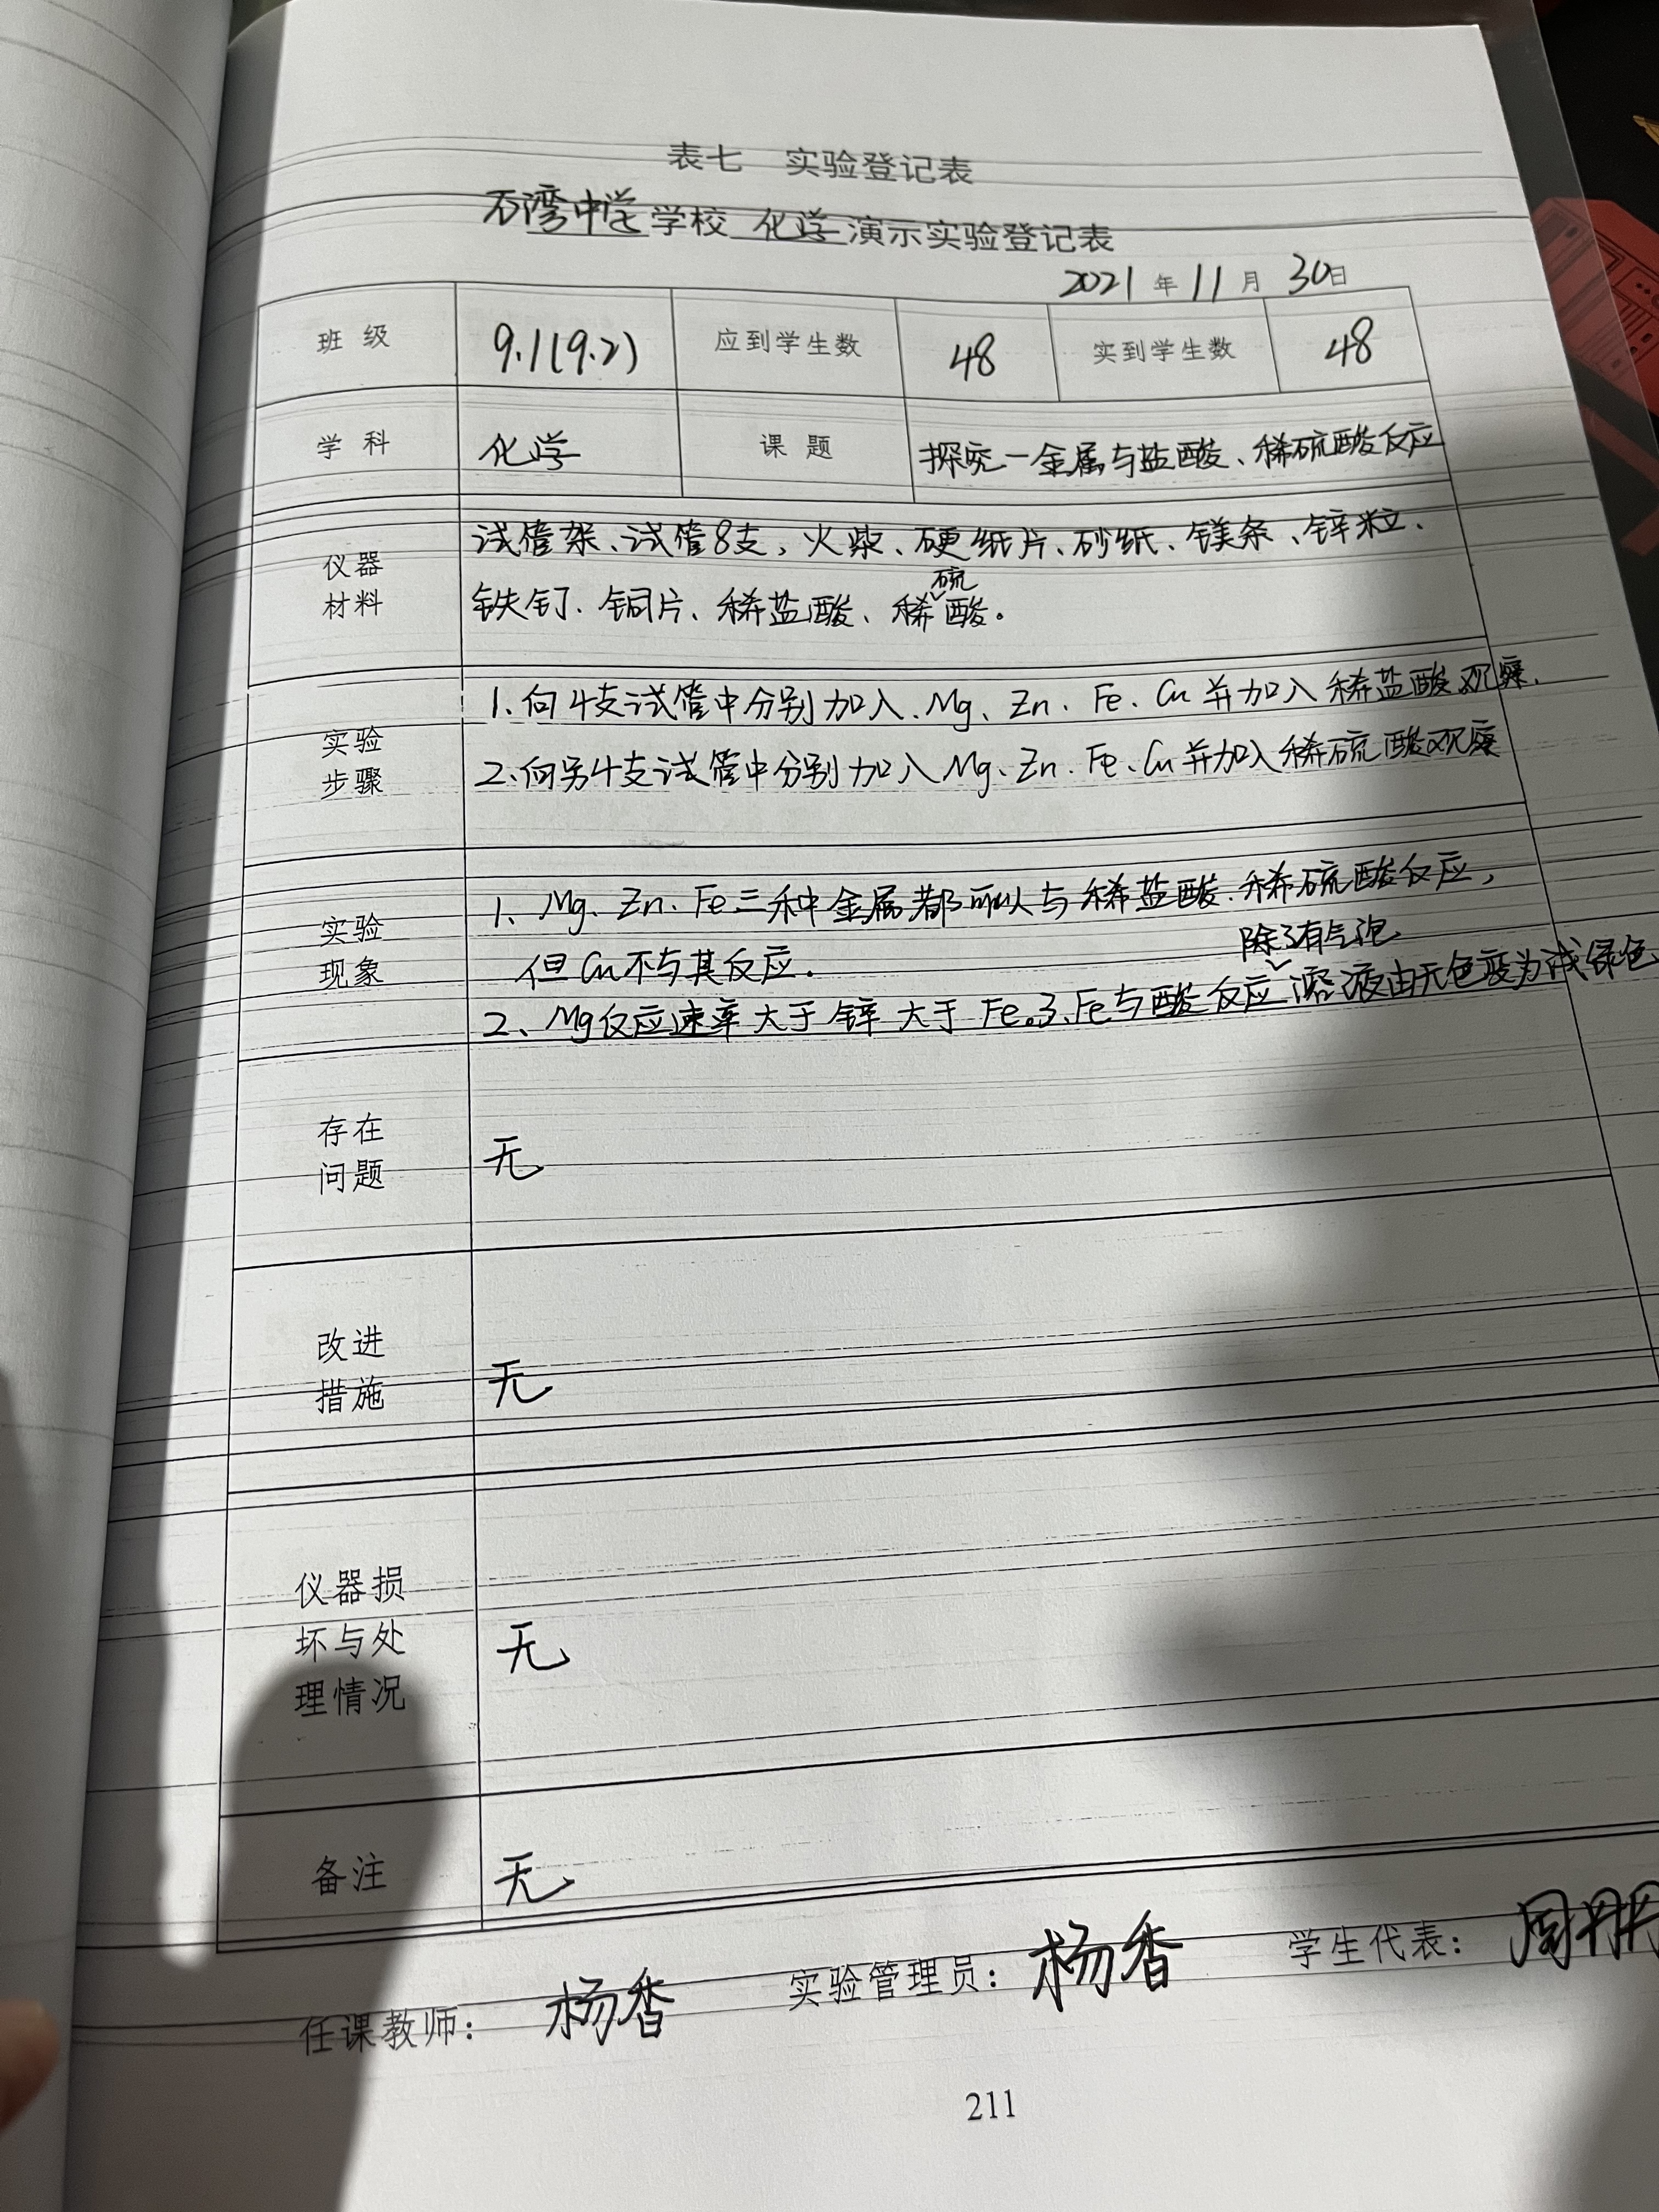 表七 实验登记表
石湾中学学校 化学 演示实验登记表
2021 年 11 月 30日
班 级 9.1(9.2) 应到学生数 48 实到学生数 48
学 科 化学 课 题 探究一金属与盐酸、稀硫酸反应
仪器
材料
试管架、试管8支,火柴、硬纸片、砂纸、镁条、锌粒、
铁钉、铜片、稀盐酸、稀硫酸。
实验
步骤
1、向4支试管中分别加入、Mg、Zn、Fe、Cu并加入稀盐酸观察.
2、向另4支试管中分别加入Mg、Zn、Fe、Cu并加入稀硫酸观察
实验
现象
1、Mg、Zn、Fe三种金属都可以与稀盐酸、稀硫酸反应,
但Cu不与其反应.
2、Mg反应速率大于锌大于Fe。3、Fe与酸反应除了有气泡溶液由无色变为浅绿色
存在
问题
无
改进
措施
无
仪器损
坏与处
理情况
无
备注
无
任课教师: 杨香 实验管理员: 杨香 学生代表: 周
211